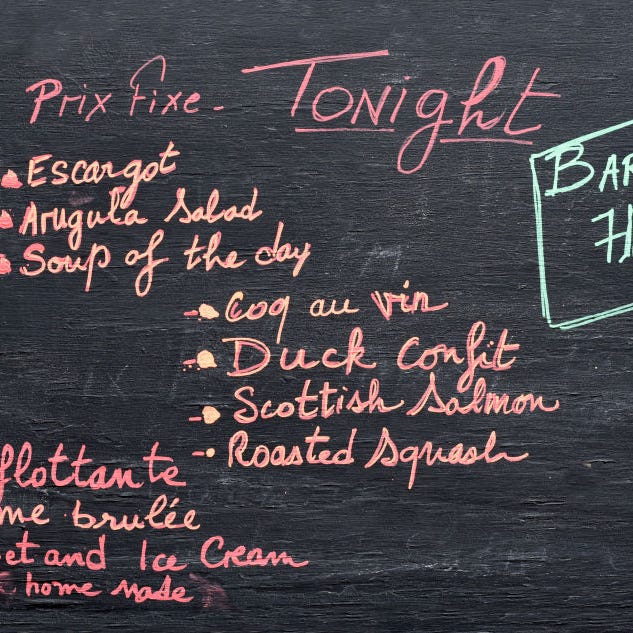 Prix Fixe - Tonight
Escargot
Arugula Salad
Soup of the day
Coq au vin
Duck Confit
Scottish Salmon
Roasted Squash
flottante
brulée
and Ice Cream
home made